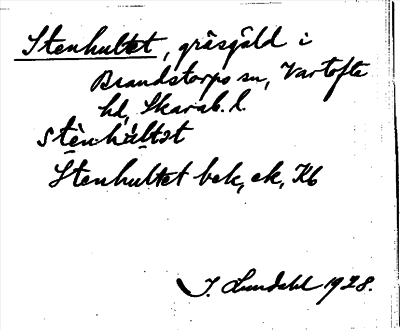 Stenhultet, gräsgäld i
Brandstorps sn, Vartofta
hd, Skarab. l.
stènhúltət
Stenhultet bek, ek, Kb
I. Lundahl 1928.